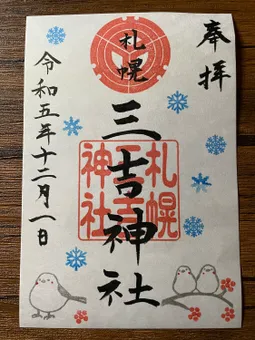 奉拝
札幌
三吉神社
札幌三吉神社
令和五年十二月一日